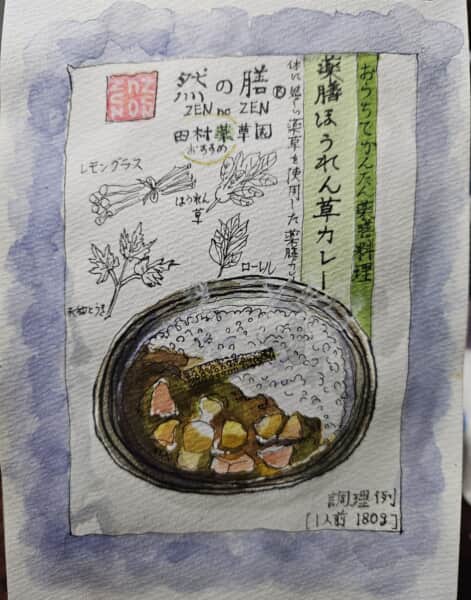 ZEN no ZEN
然の膳®
ZEN no ZEN
田村薬草園
おすすめ
おうちでかんたん薬膳料理
薬膳ほうれん草カレー
体に優しい薬草を使用した薬膳カレー
レモングラス
ほうれん
草
ローレル
大和とうき
調理例
[1人前 180g]